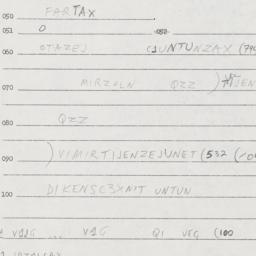 050 FARTAX
051 0 052
060 OTAZEJ CJUNTUNZAX (740
070 MIRZOLN QZZ
080 QZZ
090 )VIMIRTIJENZEJUNET (532
100 DIKENSC3XNIT UNTUN
V1G QI VEG (100